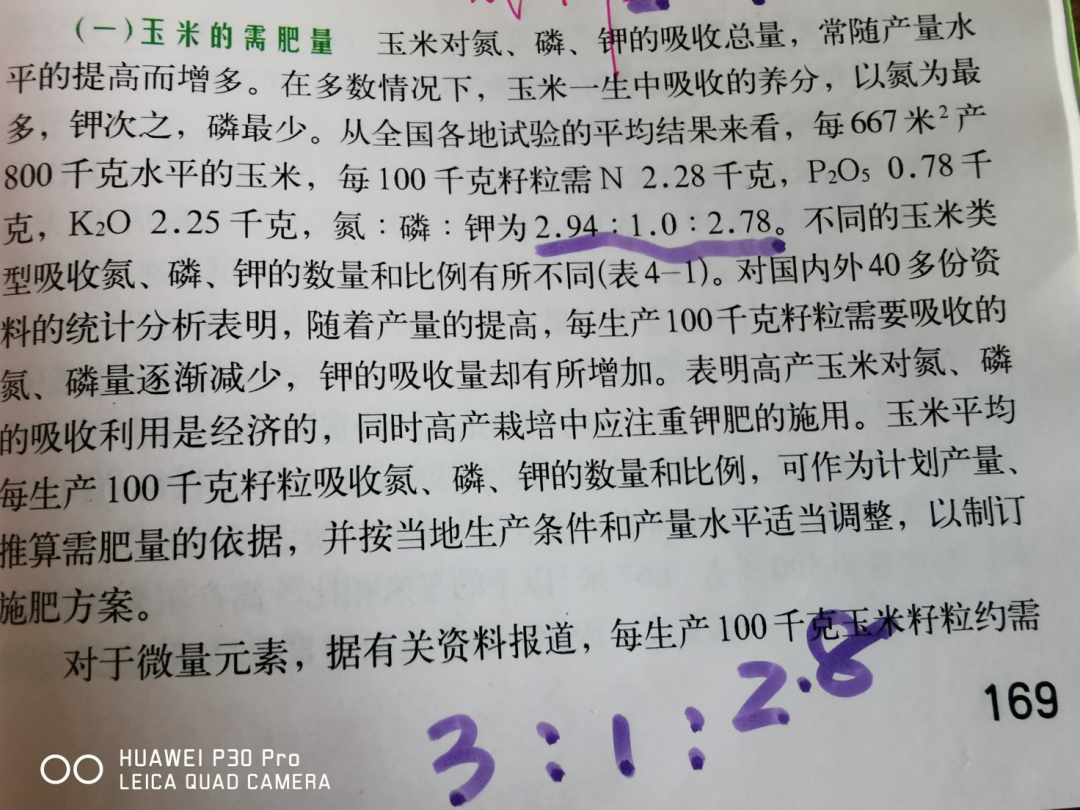 (一)玉米的需肥量 玉米对氮、磷、钾的吸收总量，常随产量水
平的提高而增多。在多数情况下，玉米一生中吸收的养分，以氮为最
多，钾次之，磷最少。从全国各地试验的平均结果来看，每667米²产
800千克水平的玉米，每100千克籽粒需N 2.28千克，P₂O₅ 0.78千
克，K₂O 2.25千克，氮：磷：钾为2.94：1.0：2.78。不同的玉米类
型吸收氮、磷、钾的数量和比例有所不同(表4-1)。对国内外40多份资
料的统计分析表明，随着产量的提高，每生产100千克籽粒需要吸收的
氮、磷量逐渐减少，钾的吸收量却有所增加。表明高产玉米对氮、磷
的吸收利用是经济的，同时高产栽培中应注重钾肥的施用。玉米平均
每生产100千克籽粒吸收氮、磷、钾的数量和比例，可作为计划产量、
推算需肥量的依据，并按当地生产条件和产量水平适当调整，以制订
施肥方案。
对于微量元素，据有关资料报道，每生产100千克玉米籽粒约需
3:1:2.8
169
HUAWEI P30 Pro
LEICA QUAD CAMERA